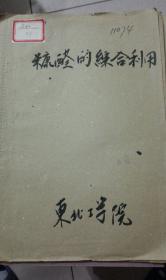 11074
糠醛的綜合利用
東北工学院